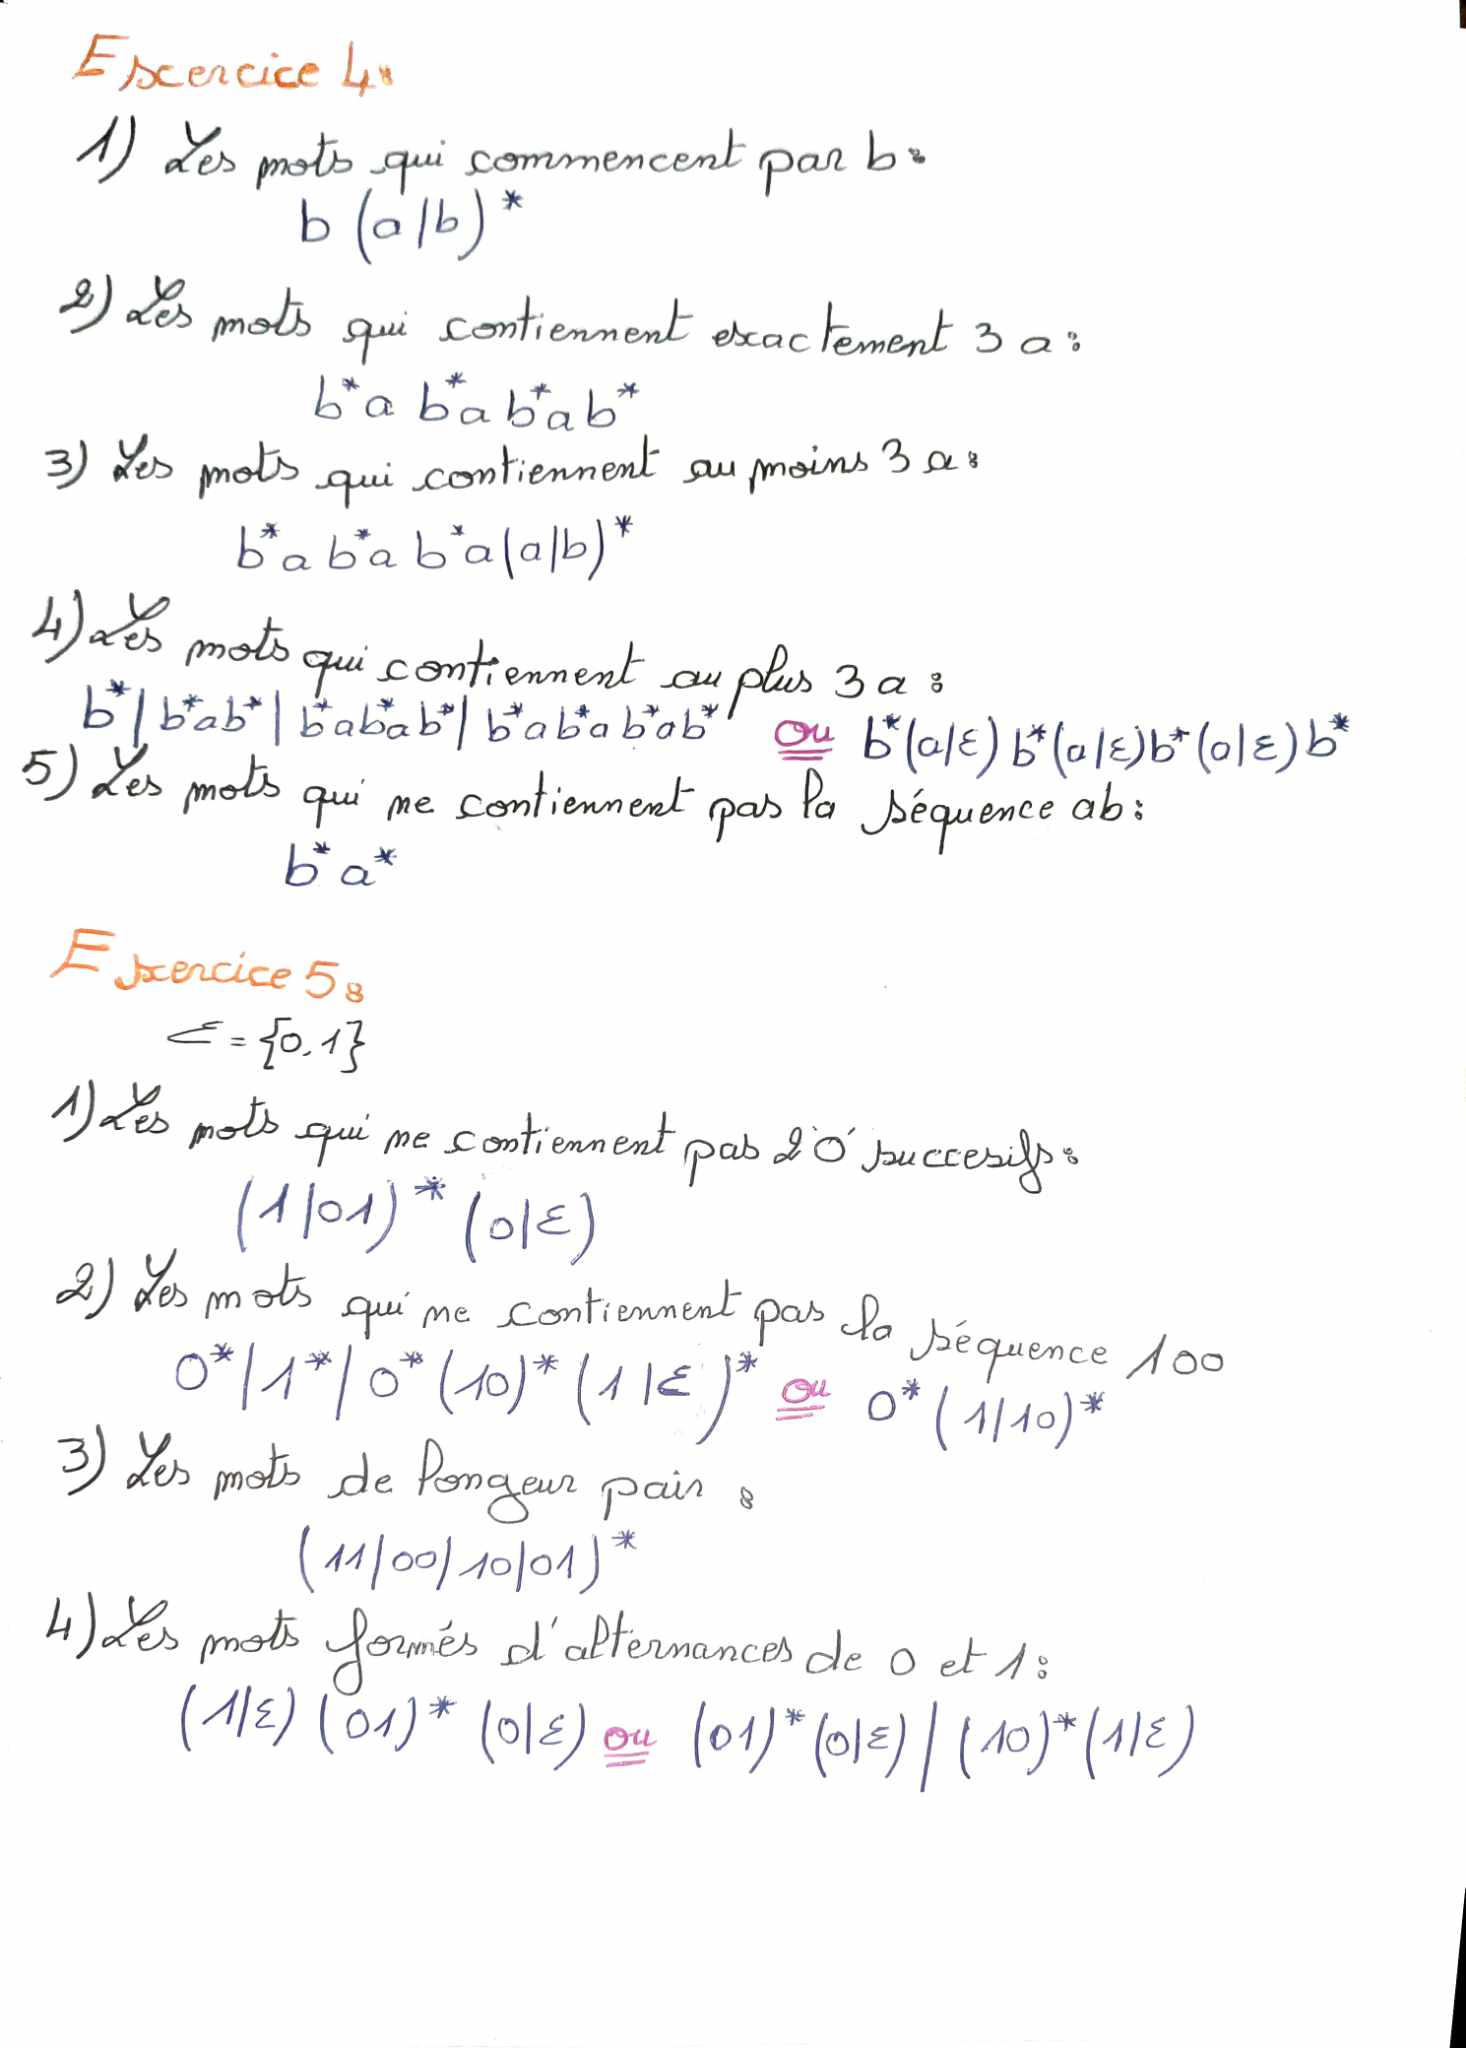 Exercice 4:
1) Les mots qui commencent par b:
b (a/b)*
2) Les mots qui contiennent exactement 3 a:
b*a b*a b*a b*
3) Les mots qui contiennent au moins 3 a:
b*a b*a b*a (a/b)*
4) Les mots qui contiennent au plus 3 a :
b*/ b*ab* / b*ab*ab* / b*ab*a b*ab* ou b*(a/ε) b*(a/ε) b*(a/ε) b*
5) Les mots qui ne contiennent pas la séquence ab:
b* a*
Exercice 5:
Σ = {0,1}
1) Les mots qui ne contiennent pas 2 '0' succesifs:
(1/01)* (0/ε)
2) Les mots qui ne contiennent pas la séquence 100
0*/1*/0*(10)*(1/ε)* ou 0*(1/10)*
3) Les mots de longeur pair :
(11/00/10/01)*
4) Les mots formés d'alternances de 0 et 1:
(1/ε) (01)* (0/ε) ou (01)*(0/ε) / (10)*(1/ε)